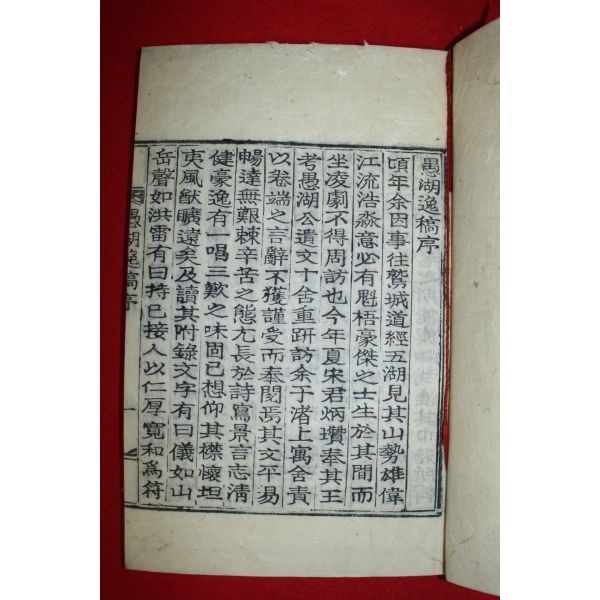 愚湖逸稿序
頃年余因事往鷲城道經五湖見其山勢雄偉
江流浩淼意必有魁梧豪傑之士生於其間而
坐凌劇不得周訪也今年夏宋君炳瓚奉其王
考愚湖公遺文十舍重趼訪余于渚上寓舍責
以卷端之言辭不獲謹受而奉閱焉其文平易
暢達無艱棘辛苦之態尤長於詩寫景言志淸
健豪逸有一唱三歎之味固已想仰其襟懷坦
夷風猷曠遠矣及讀其附錄文字有曰儀如山
岳聲如洪雷有曰持已接人以仁厚寬和爲符
愚湖逸稿序
一